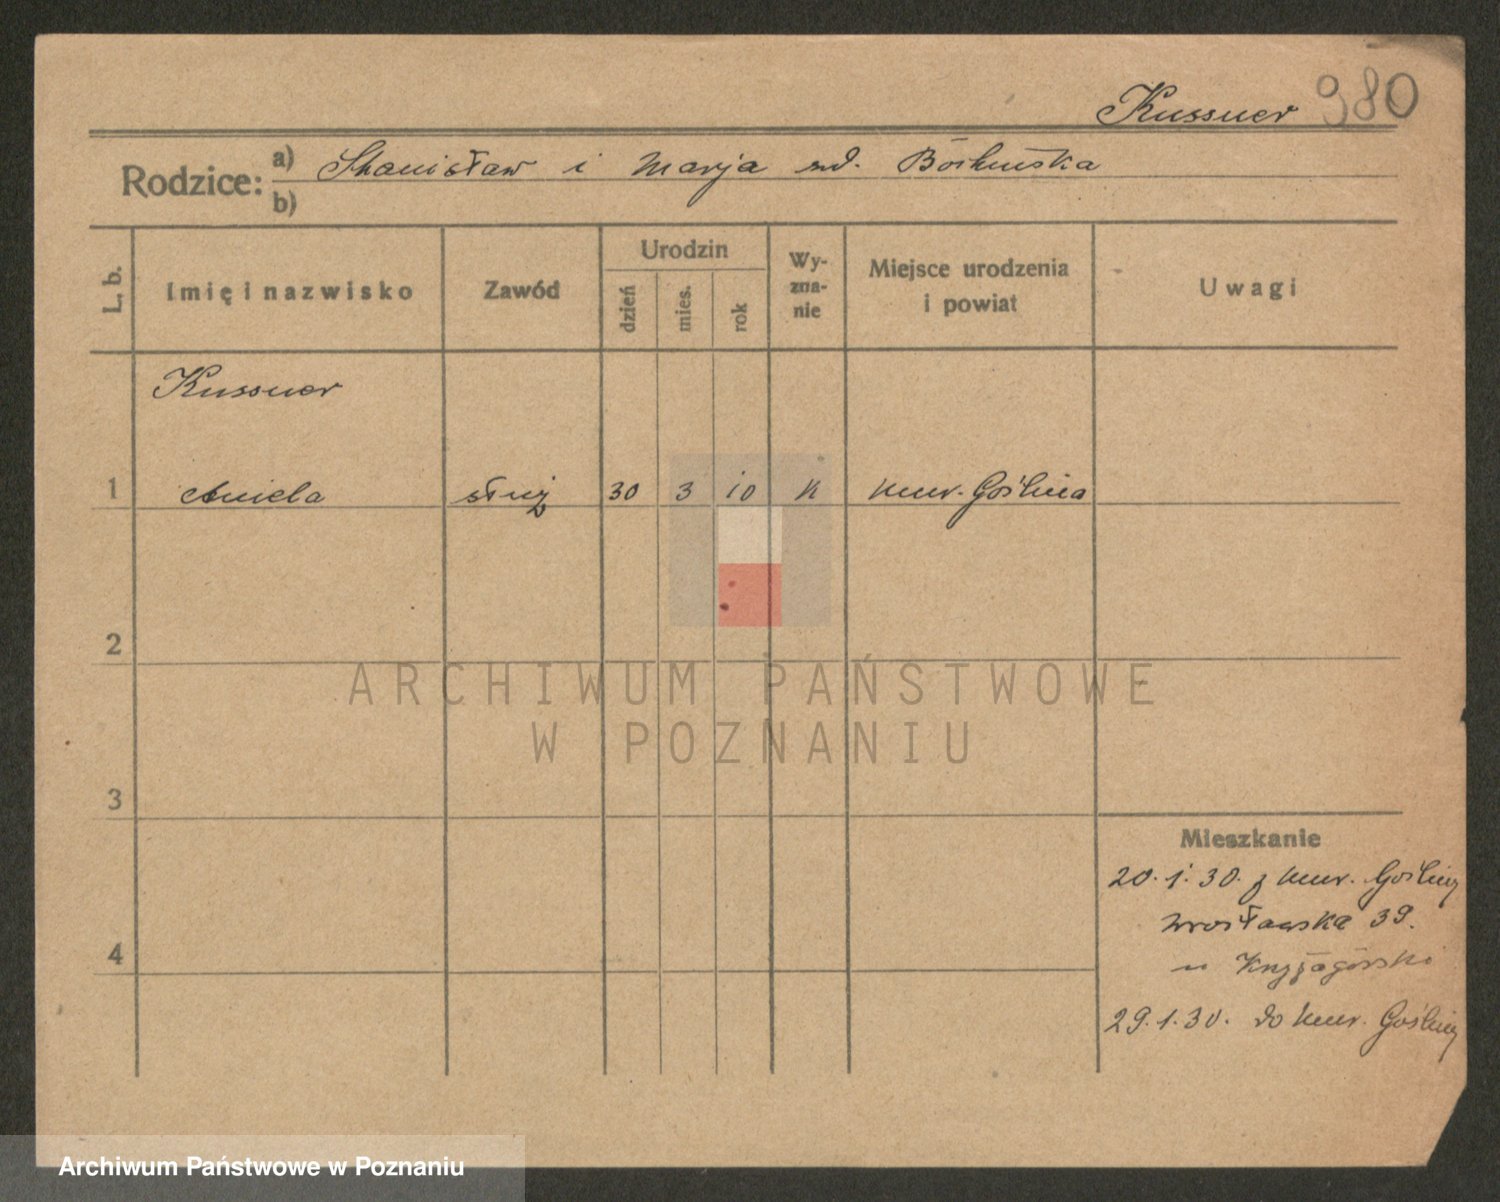 Kussner 980
Rodzice: a) Stanisław i Marja zd.
b)
L. b. Imię i nazwisko Zawód Urodzin dzień mies. rok Wy-zna-nie Miejsce urodzenia i powiat Uwagi
Kussner
1 Aniela służ 30 3 10 k Mur. Goślina
2
3
4
Mieszkanie
20.1.30. z Mur. Gośliny
Wrocławska 39.
u
29.1.30. do Mur. Gośliny
ARCHIWUM PAŃSTWOWE
W POZNANIU
Archiwum Państwowe w Poznaniu